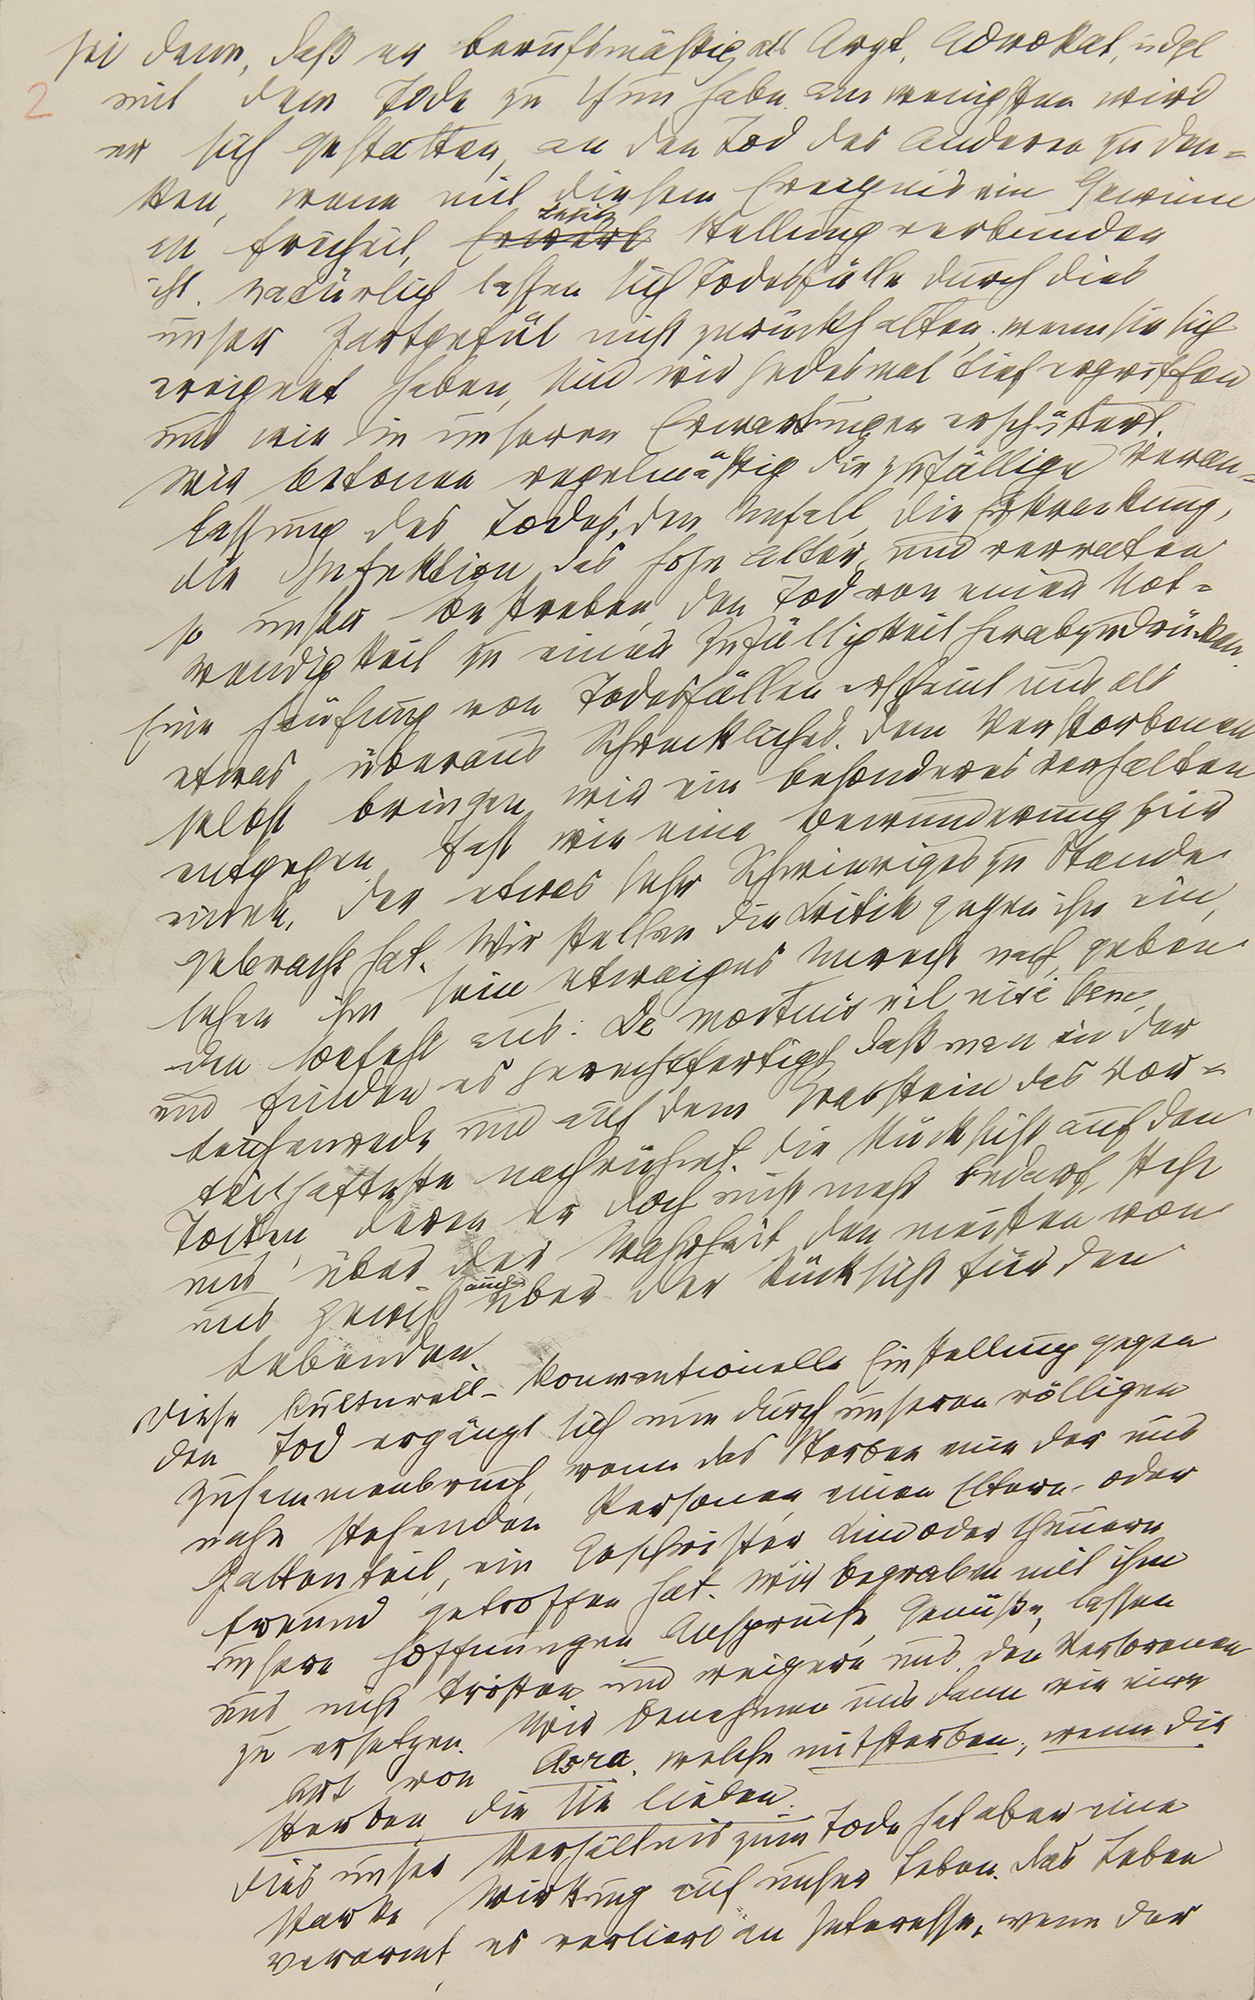 sei denn, daß er berufsmäßig als Arzt, Advokat, udgl
2 mit dem Tode zu thun habe. Am wenigsten wird
er sich gestatten, an den Tod des Anderen zu den=
ken, wenn mit diesem Ereignis ein Gewinn
an Freiheit, Erwerb Besitz Stellung verbunden
ist. Natürlich lassen sich Todesfälle durch dies
unser Zartgefül nicht zurückhalten, wenn sie sich
ereignet haben, sind wir jedesmal tief ergriffen
und wie in unseren Erwartungen erschüttert.
Wir betonen regelmäßig die zufällige Veran=
lassung des Todes, den Unfall, die Erkrankung,
die Infektion, das hohe Alter, und verraten
so unser Bestreben, den Tod von einer Not=
wendigkeit zu einer Zufälligkeit herabzudrücken.
Eine Häufung von Todesfällen erscheint uns als
etwas überaus Schreckliches. Dem Verstorbenen
selbst bringen wir ein besonderes Verhalten
entgegen, fast wie eine Bewunderung für
einen, der etwas sehr Schwieriges zu Stande
gebracht hat. Wir stellen die Kritik gegen ihn ein,
sehen ihm sein etwaiges Unrecht nach, geben
den Befehl aus: De mortuis nil nisi bene,
und finden es gerechtfertigt, daß man in der
Leichenrede und auf dem Grabstein das Vor=
teilhafteste nachrühmt. Die Rücksicht auf den
Toten, deren er doch nicht mehr bedarf, steht
uns über der Wahrheit, den meisten von
uns gewiß auch über der Rücksicht für den
Lebenden.
Diese kulturell-konventionelle Einstellung gegen
den Tod ergänzt sich nun durch unseren völligen
Zusammenbruch, wenn das Sterben eine der uns
nahe stehenden Personen, einen Eltern- oder
Gattenteil, ein Geschwister, Kind oder theuern
Freund getroffen hat. Wir begraben mit ihm
unsere Hoffnungen, Ansprüche, Genüße, lassen
uns nicht trösten und weigern uns, den Verlorenen
zu ersetzen. Wir benehmen uns dann wie eine
Art von Asra, welche mitsterben, wenn die
sterben, die sie lieben.
Dies unser Verhältnis zum Tode hat aber eine
starke Wirkung auf unser Leben. Das Leben
verarmt, es verliert an Interesse, wenn der